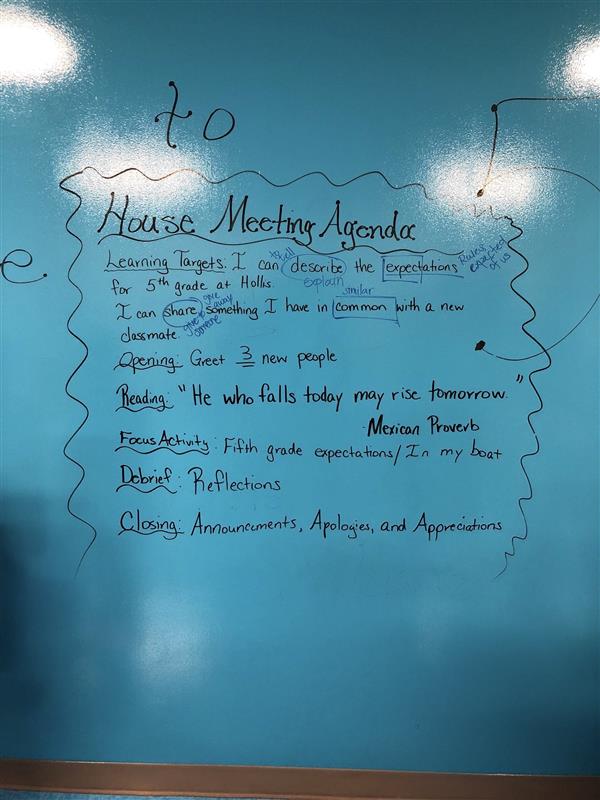 to
e
House Meeting Agenda
Learning Targets: I can describe the expectations
to tell
explain
Rules expected of us
for 5th grade at Hollis.
similar
give away
I can share something I have in common with a new
give to someone
classmate.
Opening: Greet 3 new people
Reading: "He who falls today may rise tomorrow."
Mexican Proverb
Focus Activity: Fifth grade expectations/In my boat
Debrief: Reflections
Closing: Announcements, Apologies, and Appreciations